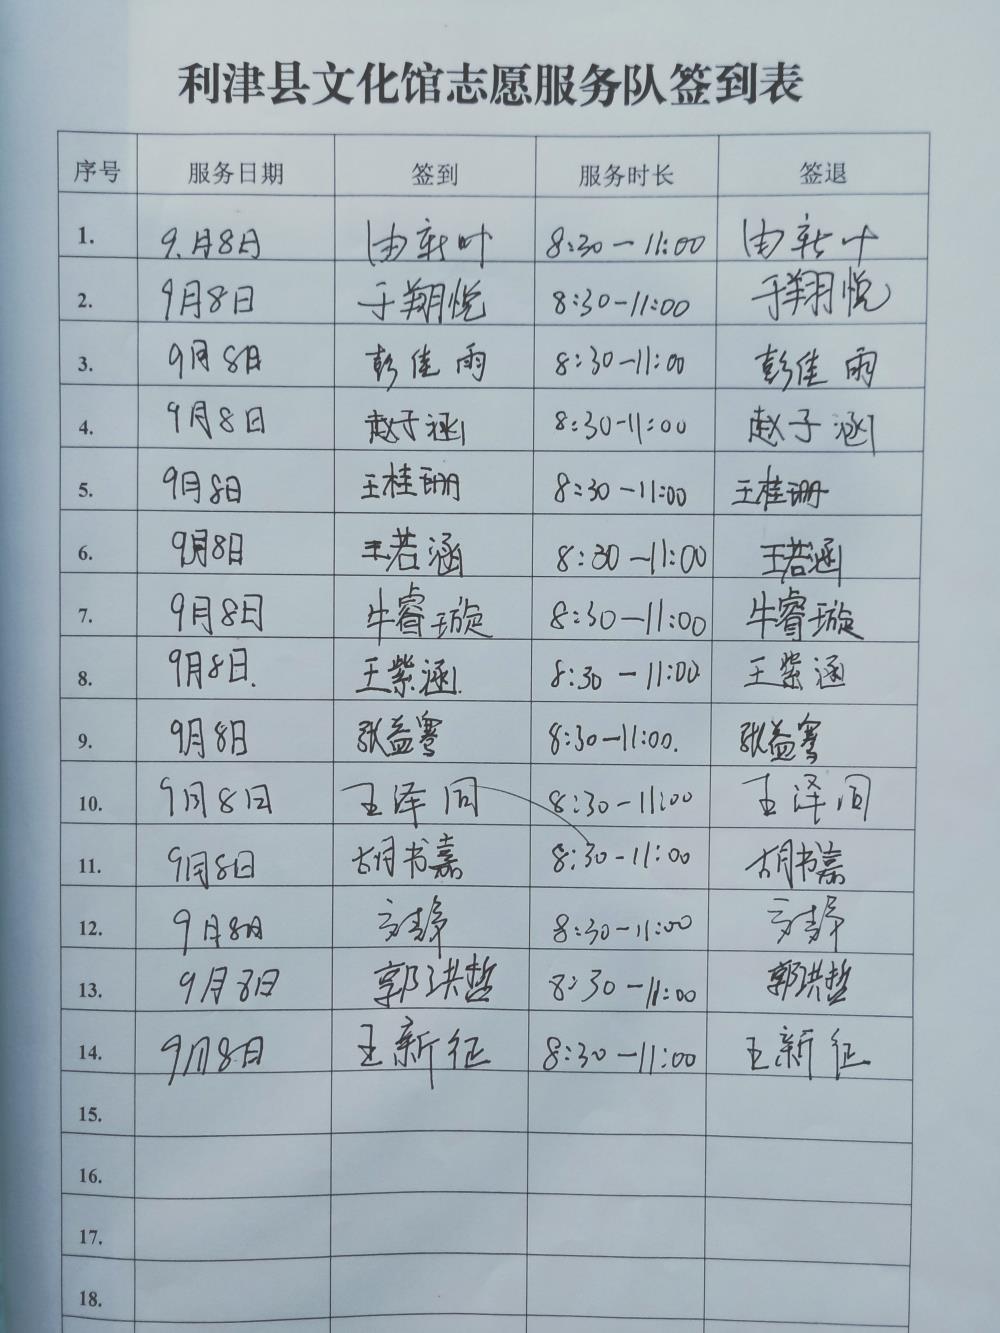 利津县文化馆志愿服务队签到表
序号 服务日期 签到 服务时长 签退
1. 9.月8日 由新叶 8:30-11:00 由新叶
2. 9月8日 于翔悦 8:30-11:00 于翔悦
3. 9月8日 彭佳雨 8:30-11:00 彭佳雨
4. 9月8日 赵子涵 8:30-11:00 赵子涵
5. 9月8日 王桂珊 8:30-11:00 王桂珊
6. 9月8日 王若涵 8:30-11:00 王若涵
7. 9月8日 牛睿璇 8:30-11:00 牛睿璇
8. 9月8日. 王紫涵 8:30-11:00 王紫涵
9. 9月8日 张益 8:30-11:00. 张益
10. 9月8日 王泽同 8:30-11:00 王泽同
11. 9月8日 胡书嘉 8:30-11:00 胡书嘉
12. 9月8日 方静 8:30-11:00 方静
13. 9月8日 郭洪哲 8:30-11:00 郭洪哲
14. 9月8日 王新征 8:30-11:00 王新征
15.
16.
17.
18.